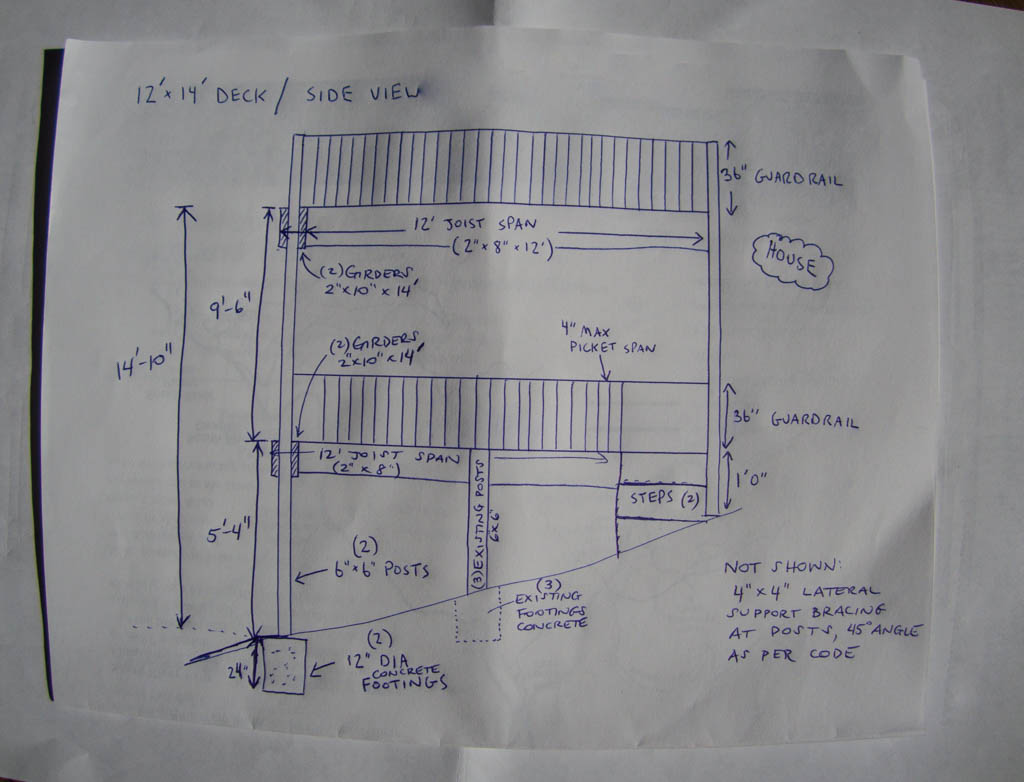 12'x14' DECK / SIDE VIEW
36" GUARDRAIL
12' JOIST SPAN
(2"x8"x12')
HOUSE
(2) GIRDERS
2"x10"x14'
9'-6"
14'-10"
4" MAX
PICKET SPAN
(2) GIRDERS
2"x10"x14'
36" GUARDRAIL
12' JOIST SPAN
(2"x8")
1'0"
STEPS (2)
(3) EXISTING POSTS
6x6"
5'-4"
(2)
6"x6" POSTS
(3)
EXISTING
FOOTINGS
CONCRETE
NOT SHOWN:
4"x4" LATERAL
SUPPORT BRACING
AT POSTS, 45° ANGLE
AS PER CODE
24"
(2)
12" DIA
CONCRETE
FOOTINGS